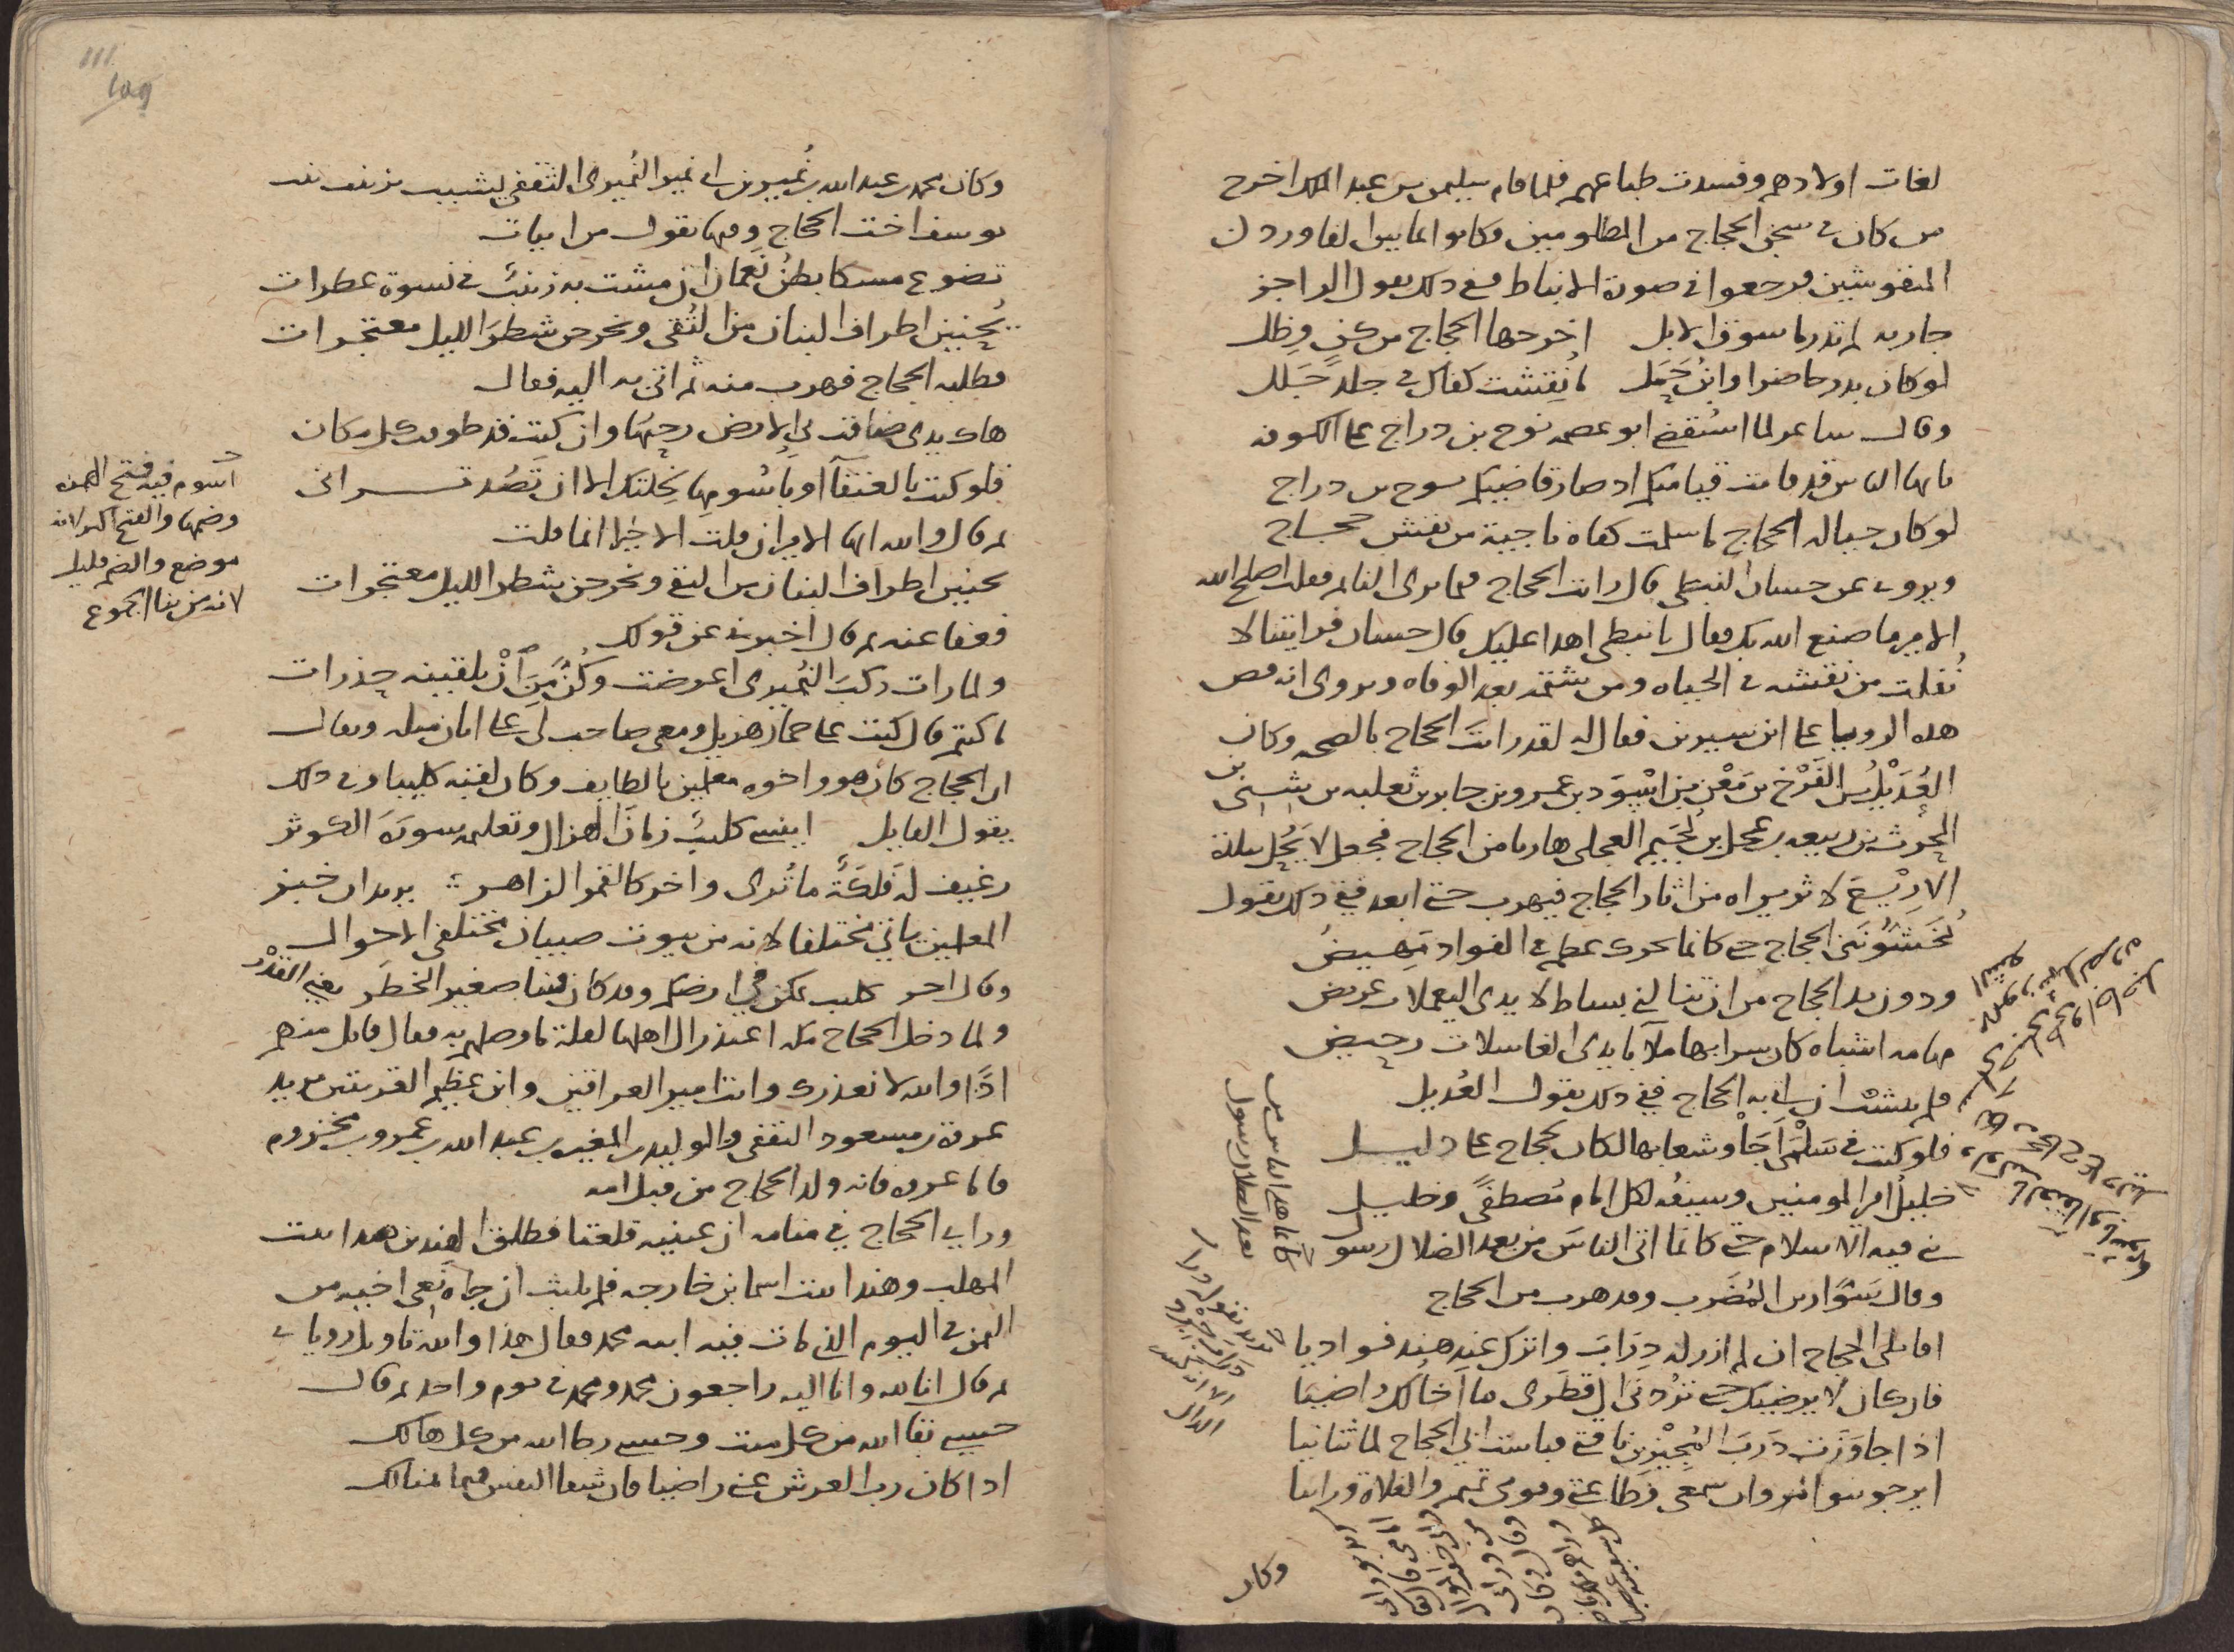 لغات اولادهم وفسدت طباعهم فلما قام سليمن بن عبد الملك اخرج
من كان في سجن الحجاج من المظلومين وكانوا
المنقوشين فرجعوا في صورة الانباط ففي ذلك يقول الراجز
جارية لم تدر ما سوق الابل اخرجها الحجاج من كن وظل
لو كان بدر حاضرا وابن حمل ما نقشت كفاك في جلد جلل
وقال شاعر لما استقضي ابو عصمه نوح بن دراج على الكوفه
يا ايها الناس قد قامت قيامتكم اذ صار قاضيكم نوح بن دراج
لو كان حيا له الحجاج ما سلمت كفاه ناجية من نقش حجاج
ويروى عن حسان النبطي قال رايت الحجاج فيما يرى النائم فقلت اصلح الله
الامير ما صنع الله بك فقال يا نبطي اهذا عليك قال حسان فرايتنا لا
نفلت من نقشه في الحياه ومن شتمه بعد الوفاه ويروى انه قص
هذه الرويا على ابن سيرين فقال له لقد رايت الحجاج بالصحه وكان
العُدَيْل بن الفَرْخ بن مَعْن بن اسْوَد بن عمرو بن جابر بن ثعلبه بن سُمَيّ بن
الحرث بن ربيعه بن عجل بن لُجَيم العجلي هاربا من الحجاج فجعل لا يحُل ببلدة
الا رِيْعَ لاثر يراه من اثار الحجاج فيهرب حتى ابعد ففي ذلك يقول
يُخَشُّونَني الحجاج حتى كانما يحرك عظم في الفواد مهيض
ودون يد الحجاج من ان تنالني بساط لايدي اليعملات عريض
مهامه اشباه كان سرابها ملآ بايدي الغاسلات رحيض
فلم ينشب ان اتي به الحجاج ففي ذلك يقول العديل
فلو كنت في سَلْمَى أَجَأ وشعابها لكان لحجاج علي دليل
خليلُ امير المومنين وسيفُه لكل امام مُصطفىً وخليل
بني قبه الاسلام حتى كانما اتى الناسَ من بعد الضلال رسول
وقال سَوّار بن المُضَرب وقد هرب من الحجاج
اقاتلي الحجاج ان لم ازر له دِرَابَ واترك عند هند فواديا
فان كان لا يرضيك حتى تَرُدَّني الى قَطَرِي ما اخالك راضيا
اذا جاوَزَت دَرَبَ المُجِيْزِين ناقتي فباست ابي الحجاج لما ثنانيا
ايرجو بنو مروان سمعي وَطاعتي وقومي تميم والفلاة ورائيا
وكان
كانما هدى الناس من
بعد الضلال رسول
وكان محمد بن عبد الله بن نُمَير بن ابي نمير النُميري الثقفي يشبب بزينب بنت
يوسف اخت الحجاج وفيها يقول من ابيات
تضوع مسكا بطنُ نَعمان ان مشت به زينبٌ في نسوة عطرات
يُخَبين اطراف البنان من التُقى ويخرجن شطرَ الليل معتجرات
فطلبه الحجاج فهرب منه ثم اتي به اليه فقال
هاك يدي ضاقت بي الارض رحبُها وان كنت قد طوفت كل مكان
فلو كنت بالعنقآ او باسُومها لخلتك الا ان تَصُد تراني
ثم قال والله ايها الامير ان قلت الا خيرا انما قلت
يخبين اطراف البنان من التقى ويخرجن شطر الليل معتجرات
فعفا عنه ثم قال اخبرني عن قولك
ولما رات ركبَ النُميري اعرضت وكُنَّ مِنَ أنْ يلقينه حذرات
ما كنتم قال كنت على حمار هزيل ومعي صاحب لي على اتان مثله ويقال
ان الحجاج كان هو واخوه معلمين بالطايف وكان لقبه كليبا وفي ذلك
يقول القايل اينسى كليبٌ زمانَ الهزال وتعليمه سورةَ الكوثر
رغيف له فَلكَةٌ ما تُرى واخر كالقمر الزاهر يريد ان خبز
المعلمين ياتي مختلفا لانه من بيوت صبيان مختلفي الاحوال
وقال اخر كليب تمكن في ارضكم وقد كان فينا صغير الخطر يعني القَدْر
ولما دخل الحجاج مكه اعتذر الى اهلها لقلة ما وصلهم به فقال قايل منهم
اذًا والله لا نعذرك وانت امير العراقين وابن عظيم القريتين يريد
عروة بن مسعود الثقفي والوليد بن المغيره بن عبد الله بن عمرو بن مخزوم
فاما عروه فانه ولد الحجاج من قبل امه
وراى الحجاج في منامه ان عينيه قلعتا فطلق الهندين هندا بنت
المهلب وهندا بنت اسما بن خارجه فلم يلبث ان جاه نَعي اخيه من
اليمن في اليوم الذي مات فيه ابنه محمد فقال هذا والله تاويل روياي
ثم قال انا لله وانا اليه راجعون محمد ومحمد في يوم واحد ثم قال
حسبي بقا الله من كل ميت وحسبي رجا الله من كل هالك
اذا كان رب العرش عني راضيا فان شفا النفس فيما هنالك
اسوم فيه فتح الهمزه
وضمها والفتح اكثر لانه
موضع والضم قليل
لانه من بنا الجموع
111
109